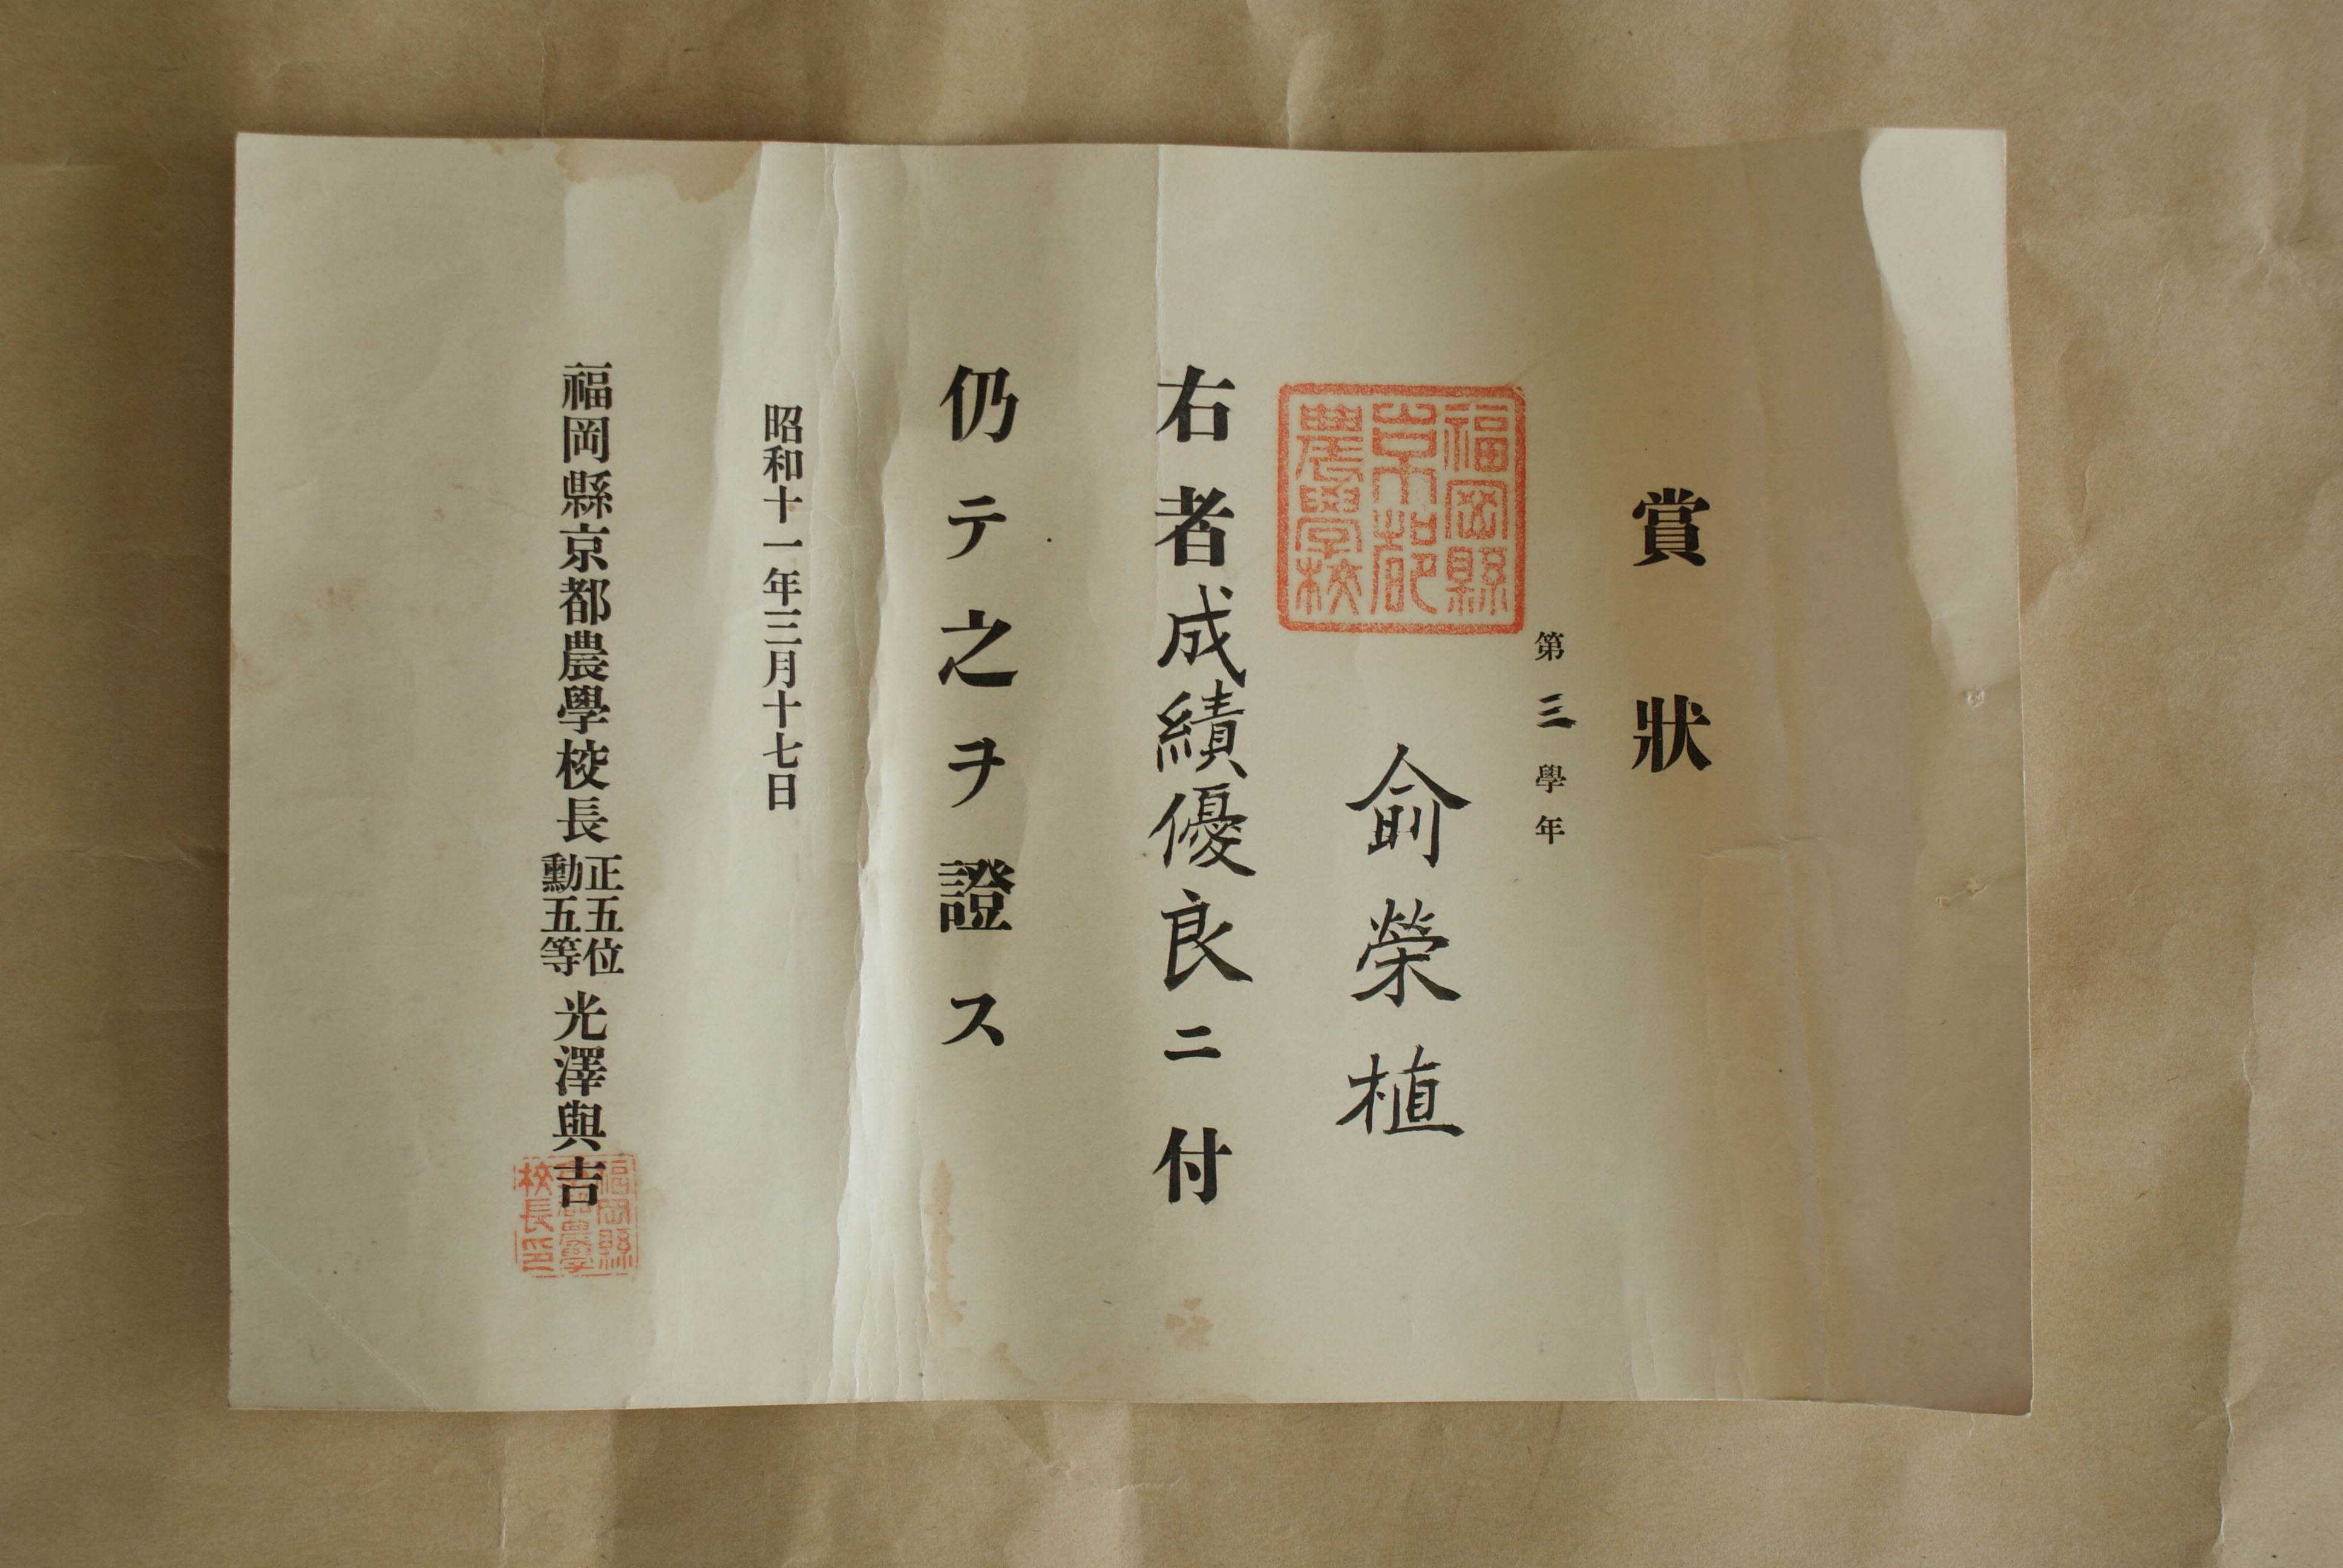 賞狀
第三學年
福岡縣
京都
農學校
俞榮植
右者成績優良ニ付
仍テ之ヲ證ス
昭和十一年三月十七日
福岡縣京都農學校長正五位勳五等光澤與吉
福岡縣
京都農學
校長印